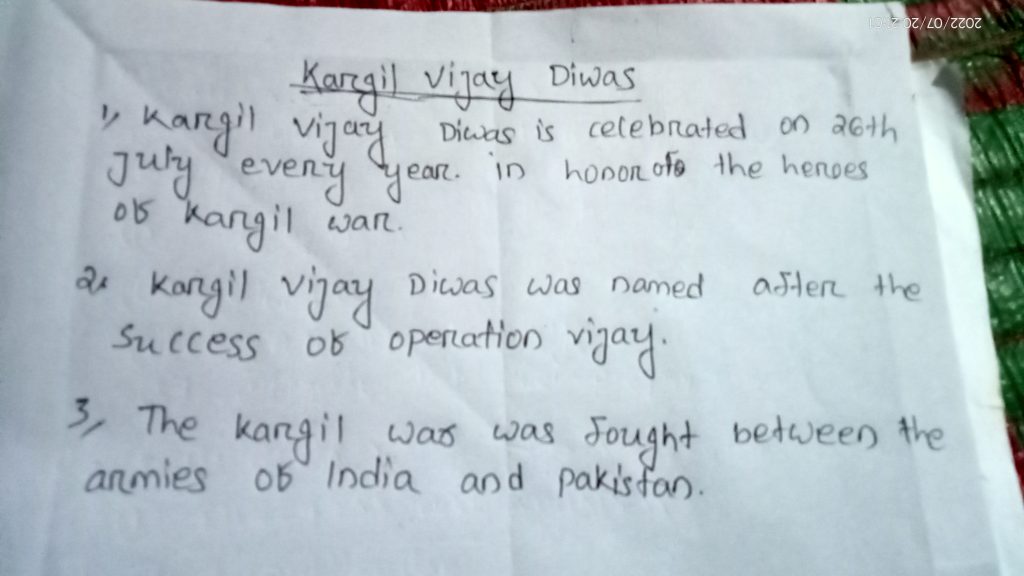 2022/07/20 21:01
Kargil Vijay Diwas
1, Kargil Vijay Diwas is celebrated on 26th
July every year. in honor of the heroes
of Kargil war.
2, Kargil Vijay Diwas was named after the
Success of operation vijay.
3, The Kargil war was fought between the
armies of India and pakistan.